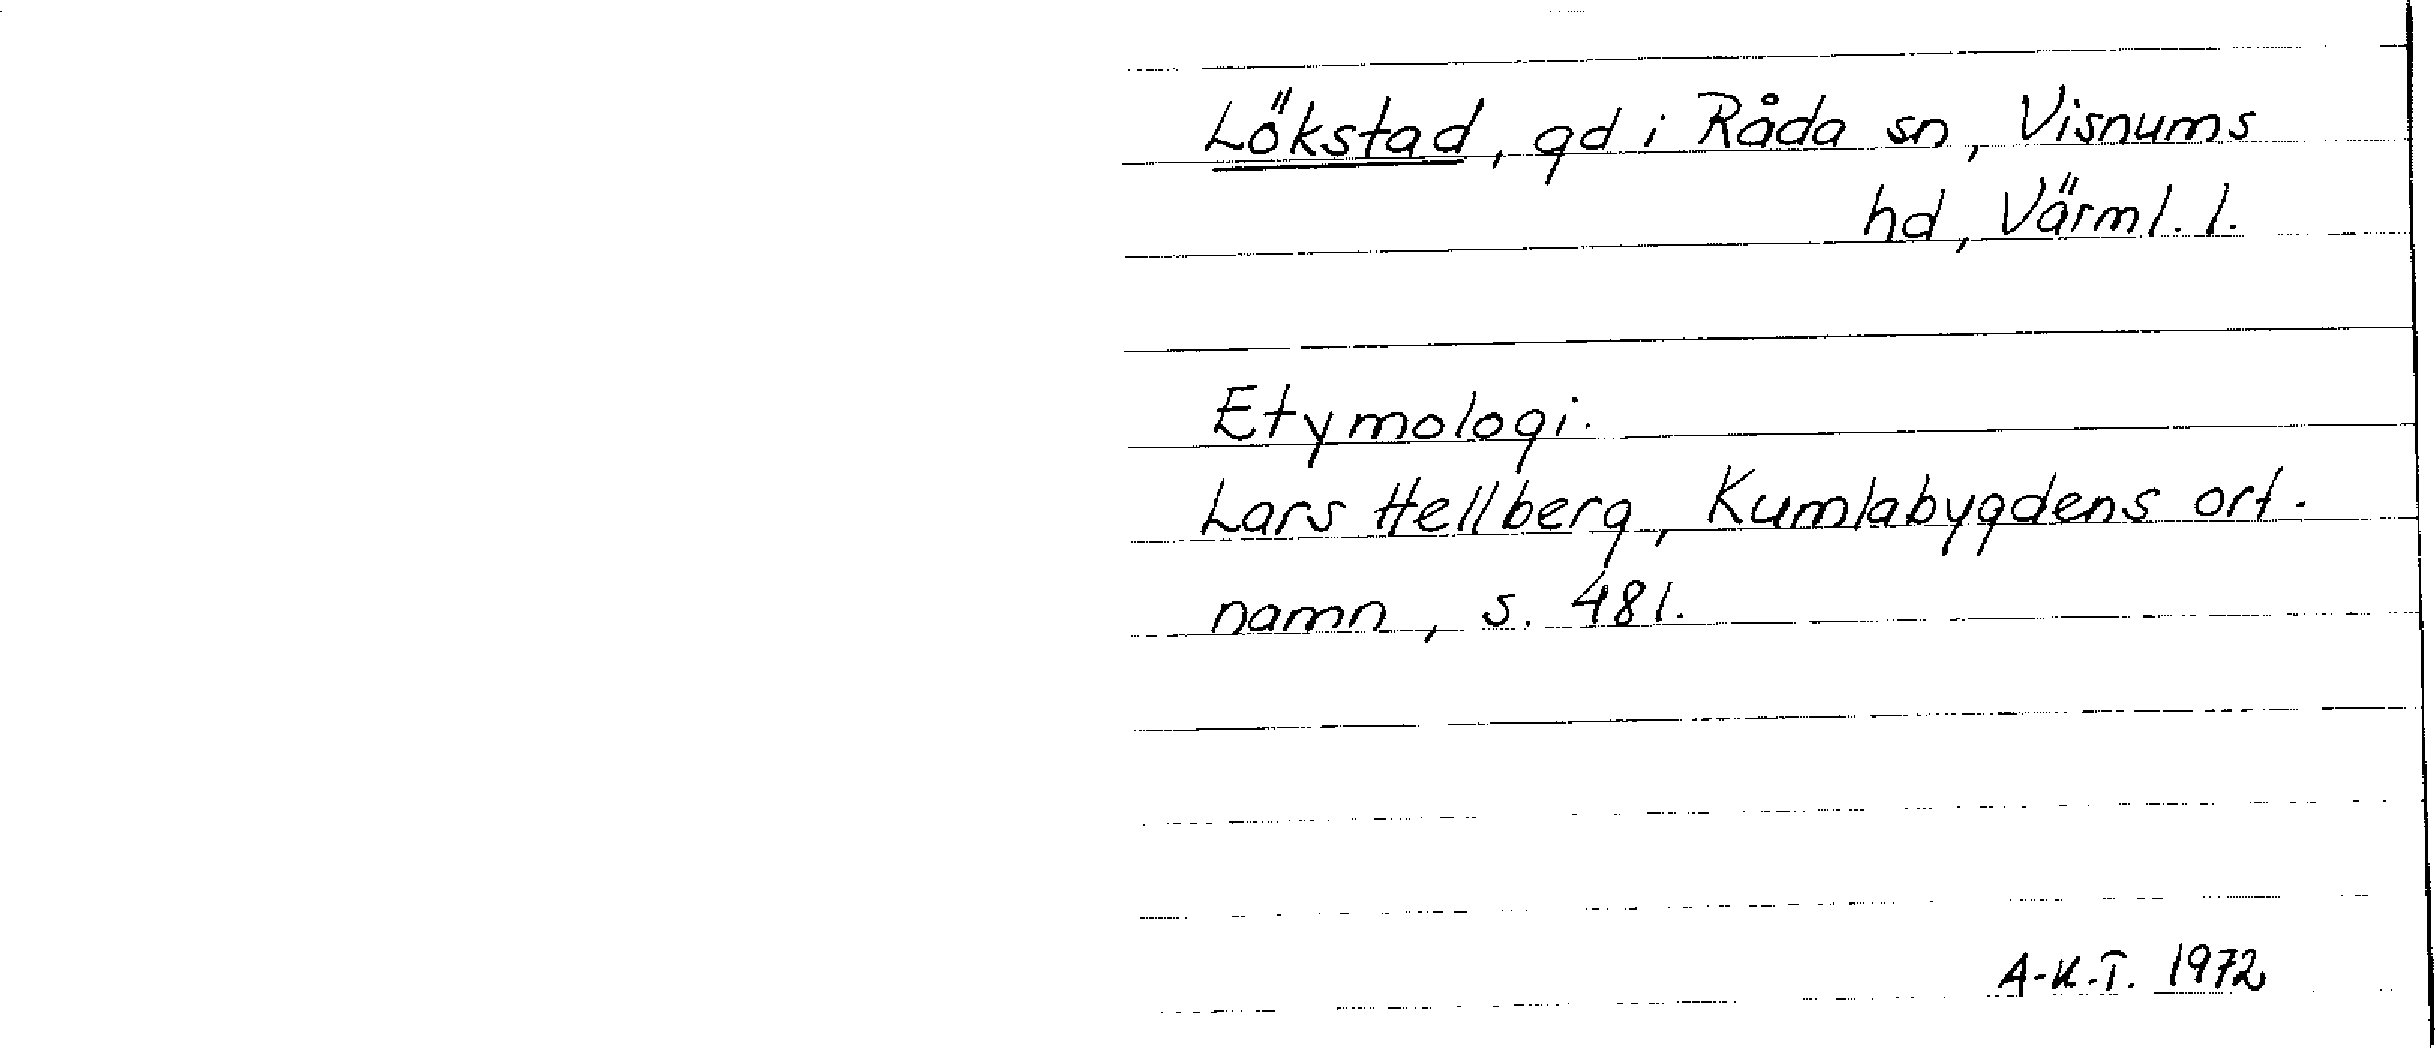 Lökstad, gd i Råda sn, Visnums
hd, Värml. l.
Etymologi.
Lars Hellberg, Kumlabygdens ort-
namn, s. 481.
A-K.T. 1972